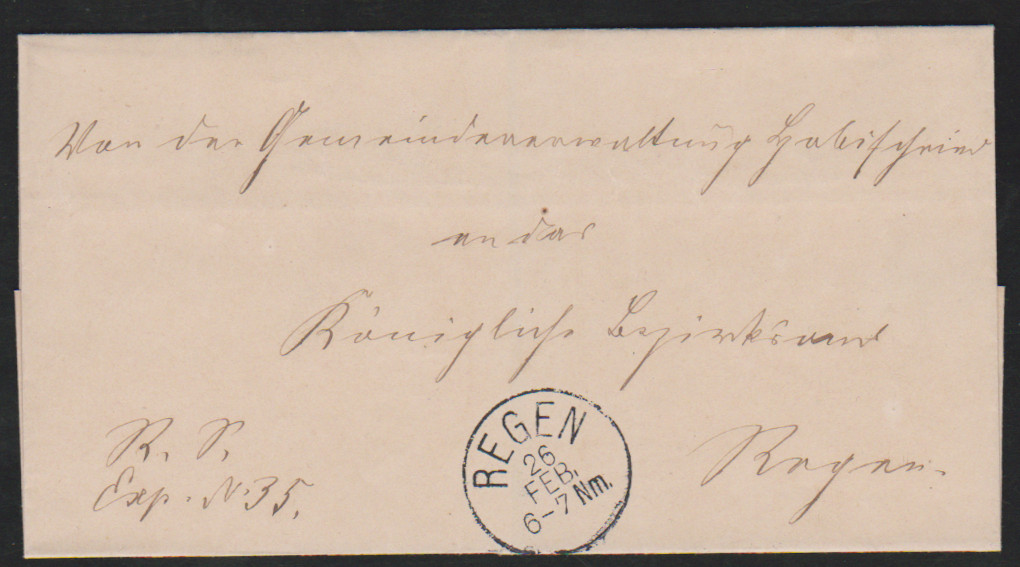 Von der Gemeindeverwaltung Habischried
an das
Königliche Bezirksamt
Regen.
R. S.
Exp. № 35.
REGEN
26
FEB.
6-7 Nm.